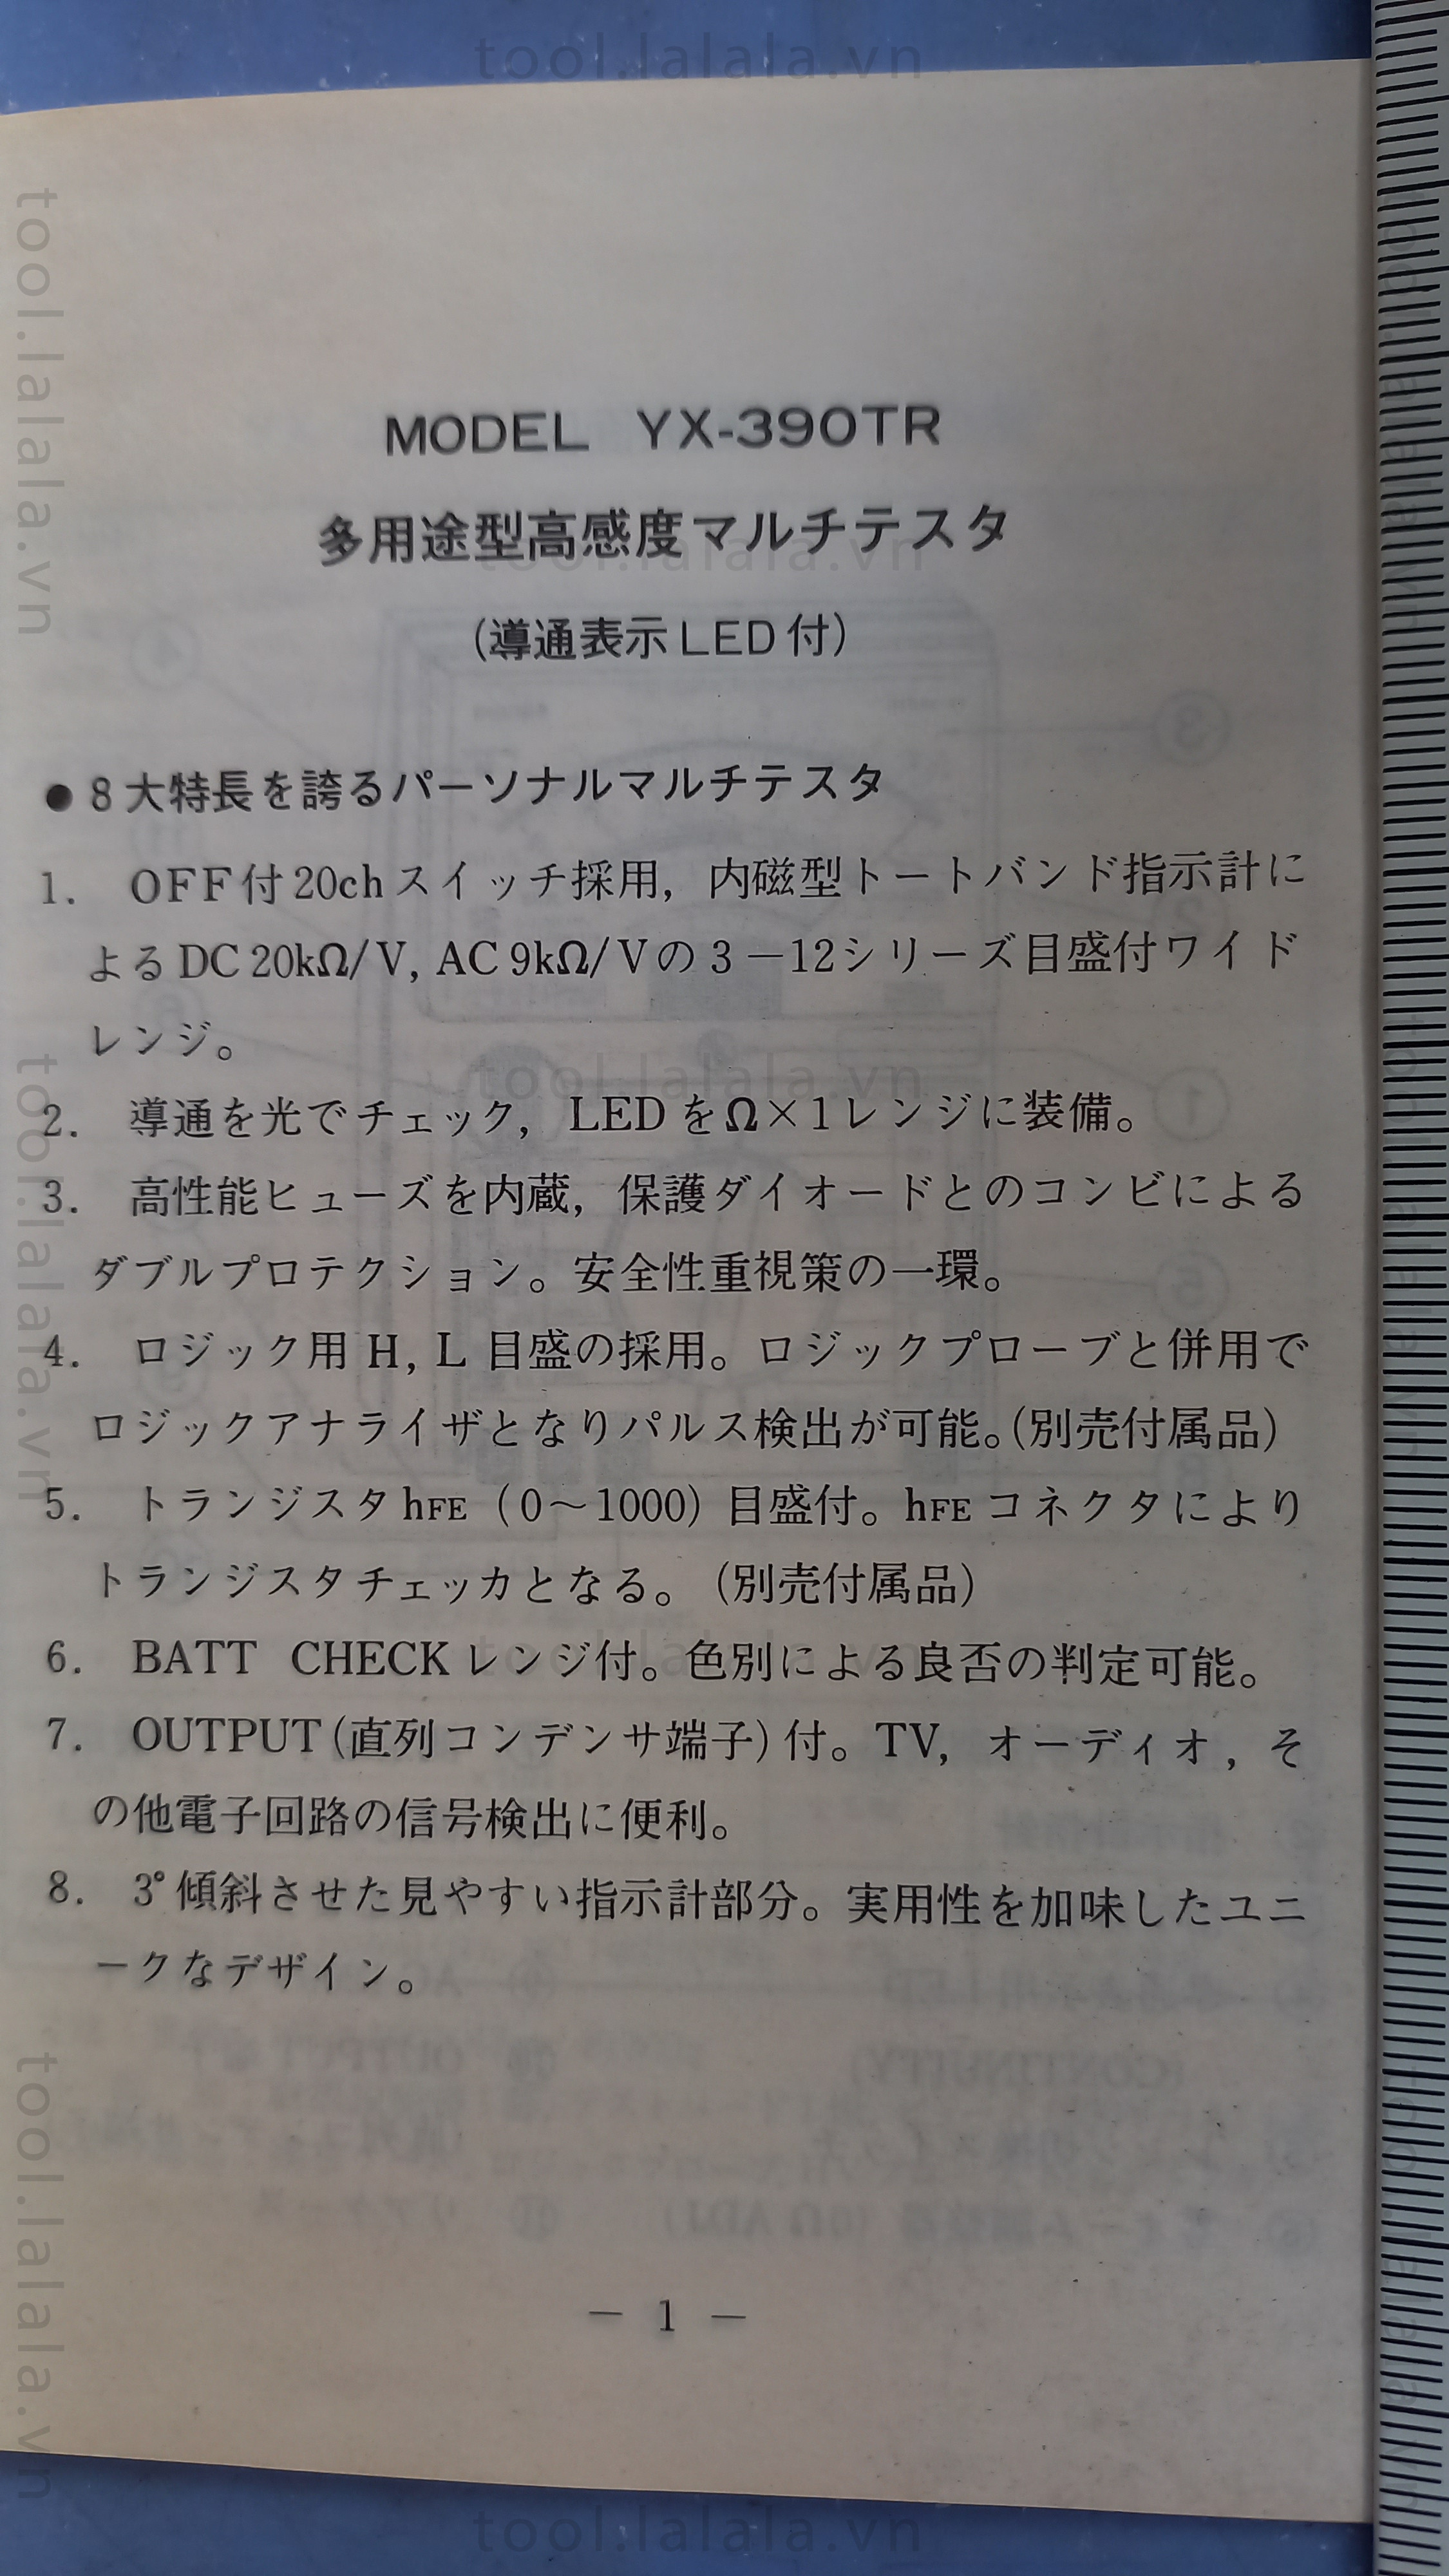 MODEL YX-390TR
多用途型高感度マルチテスタ
(導通表示LED付)
●8大特長を誇るパーソナルマルチテスタ
1. OFF付20chスイッチ採用, 内磁型トートバンド指示計に
よるDC 20kΩ/V, AC 9kΩ/Vの3−12シリーズ目盛付ワイド
レンジ。
2. 導通を光でチェック, LEDをΩ×1レンジに装備。
3. 高性能ヒューズを内蔵, 保護ダイオードとのコンビによる
ダブルプロテクション。安全性重視策の一環。
4. ロジック用 H, L 目盛の採用。ロジックプローブと併用で
ロジックアナライザとなりパルス検出が可能。(別売付属品)
5. トランジスタhFE (0〜1000) 目盛付。hFE コネクタにより
トランジスタチェッカとなる。(別売付属品)
6. BATT CHECKレンジ付。色別による良否の判定可能。
7. OUTPUT(直列コンデンサ端子)付。TV, オーディオ, そ
の他電子回路の信号検出に便利。
8. 3°傾斜させた見やすい指示計部分。実用性を加味したユニ
ークなデザイン。
− 1 −
tool.lalala.vn
tool.lalala.vn
tool.lalala.vn
tool.lalala.vn
tool.lalala.vn
tool.lalala.vn
tool.lalala.vn